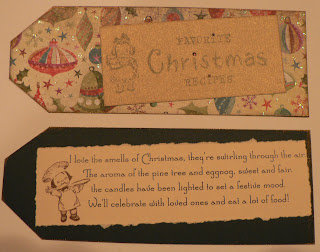 FAVORITE
Christmas
RECIPES
I love the smells of Christmas, they're swirling through the air.
The aroma of the pine tree and eggnog, sweet and fair.
the candles have been lighted to set a festive mood.
We'll celebrate with loved ones and eat a lot of food!